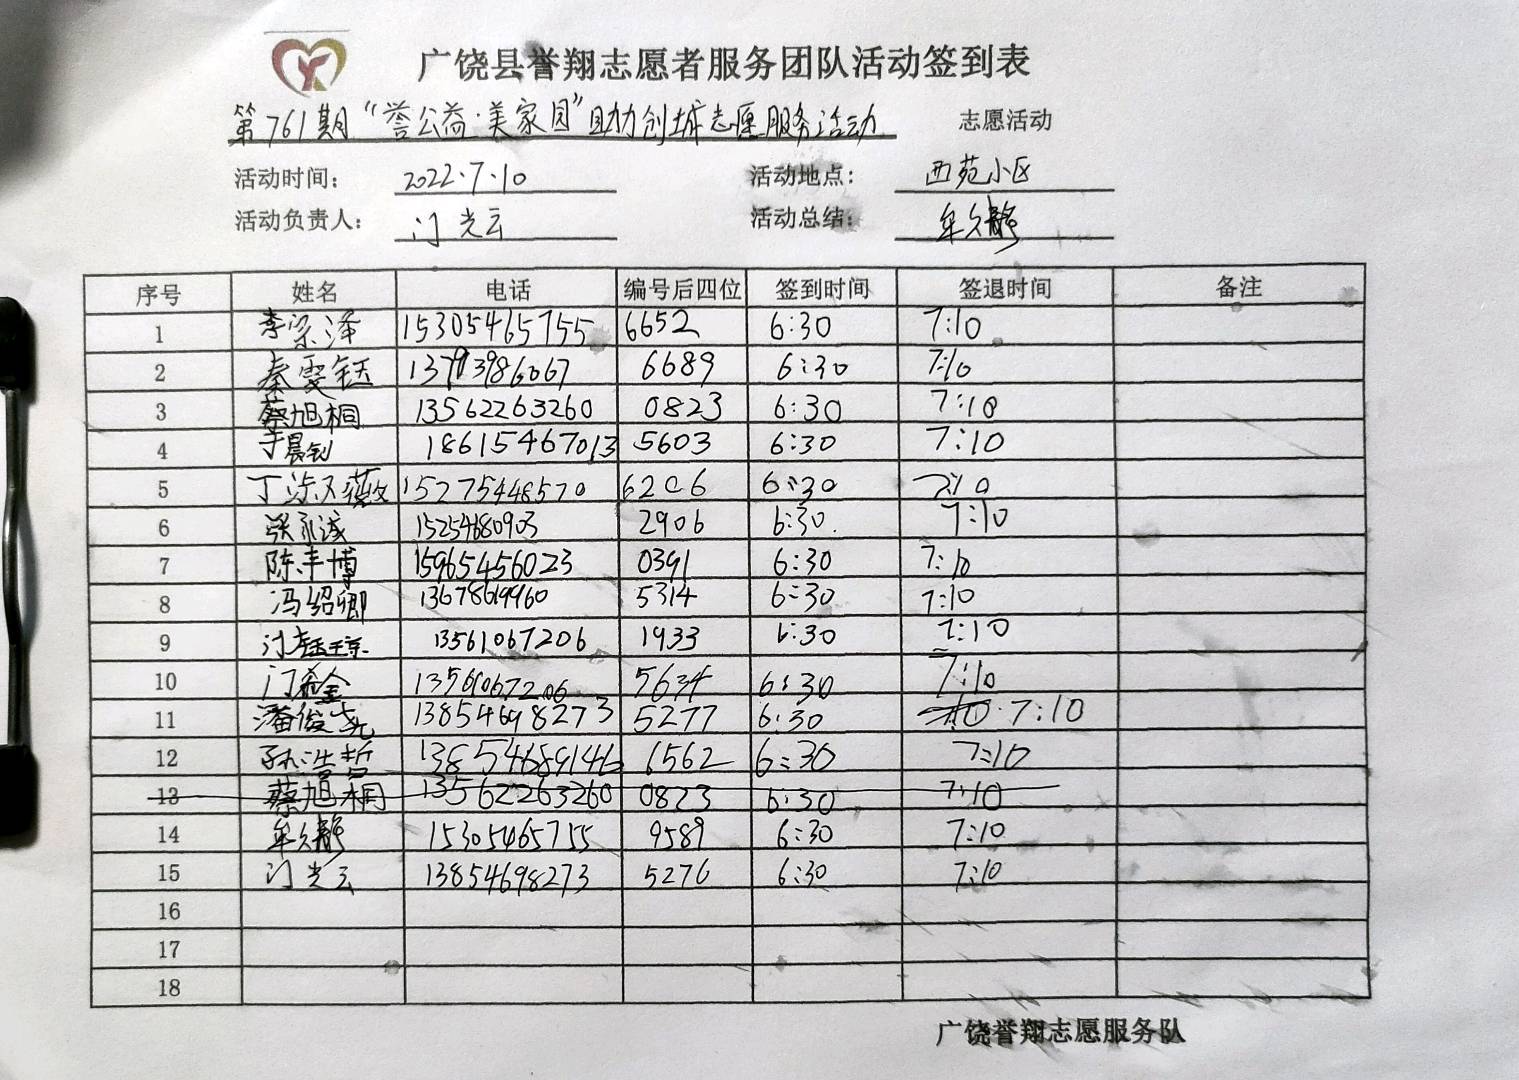 广饶县誉翔志愿者服务团队活动签到表
第761期“誉公益·美家园”助力创城志愿服务活动 志愿活动
活动时间： 2022.7.10 活动地点： 西苑小区
活动负责人： 门光云 活动总结： 牟久静
序号 姓名 电话 编号后四位 签到时间 签退时间 备注
1 李梁泽 15305465755 6652 6:30 7:10
2 秦雯钰 13793986067 6689 6:30 7:10
3 蔡旭桐 13562263260 0823 6:30 7:10
4 于晨钊 18615467013 5603 6:30 7:10
5 丁 薇 15275448570 6206 6:30 7:10
6 张永诚 15254680903 2906 6:30. 7:10
7 陈丰博 15965456023 0391 6:30 7:10
8 冯绍卿 13678619960 5314 6:30 7:10
9 门 13561067206 1933 6:30 7:10
10 门希金 13561067206 5634 6:30 7:10
11 潘俊尧 13854698273 5277 6:30 7:10
12 孙浩哲 13854689146 6562 6:30 7:10
13 蔡旭桐 13562263260 0823 6:30 7:10
14 牟久静 15305465755 9589 6:30 7:10
15 门光云 13854698273 5276 6:30 7:10
16
17
18
广饶誉翔志愿服务队